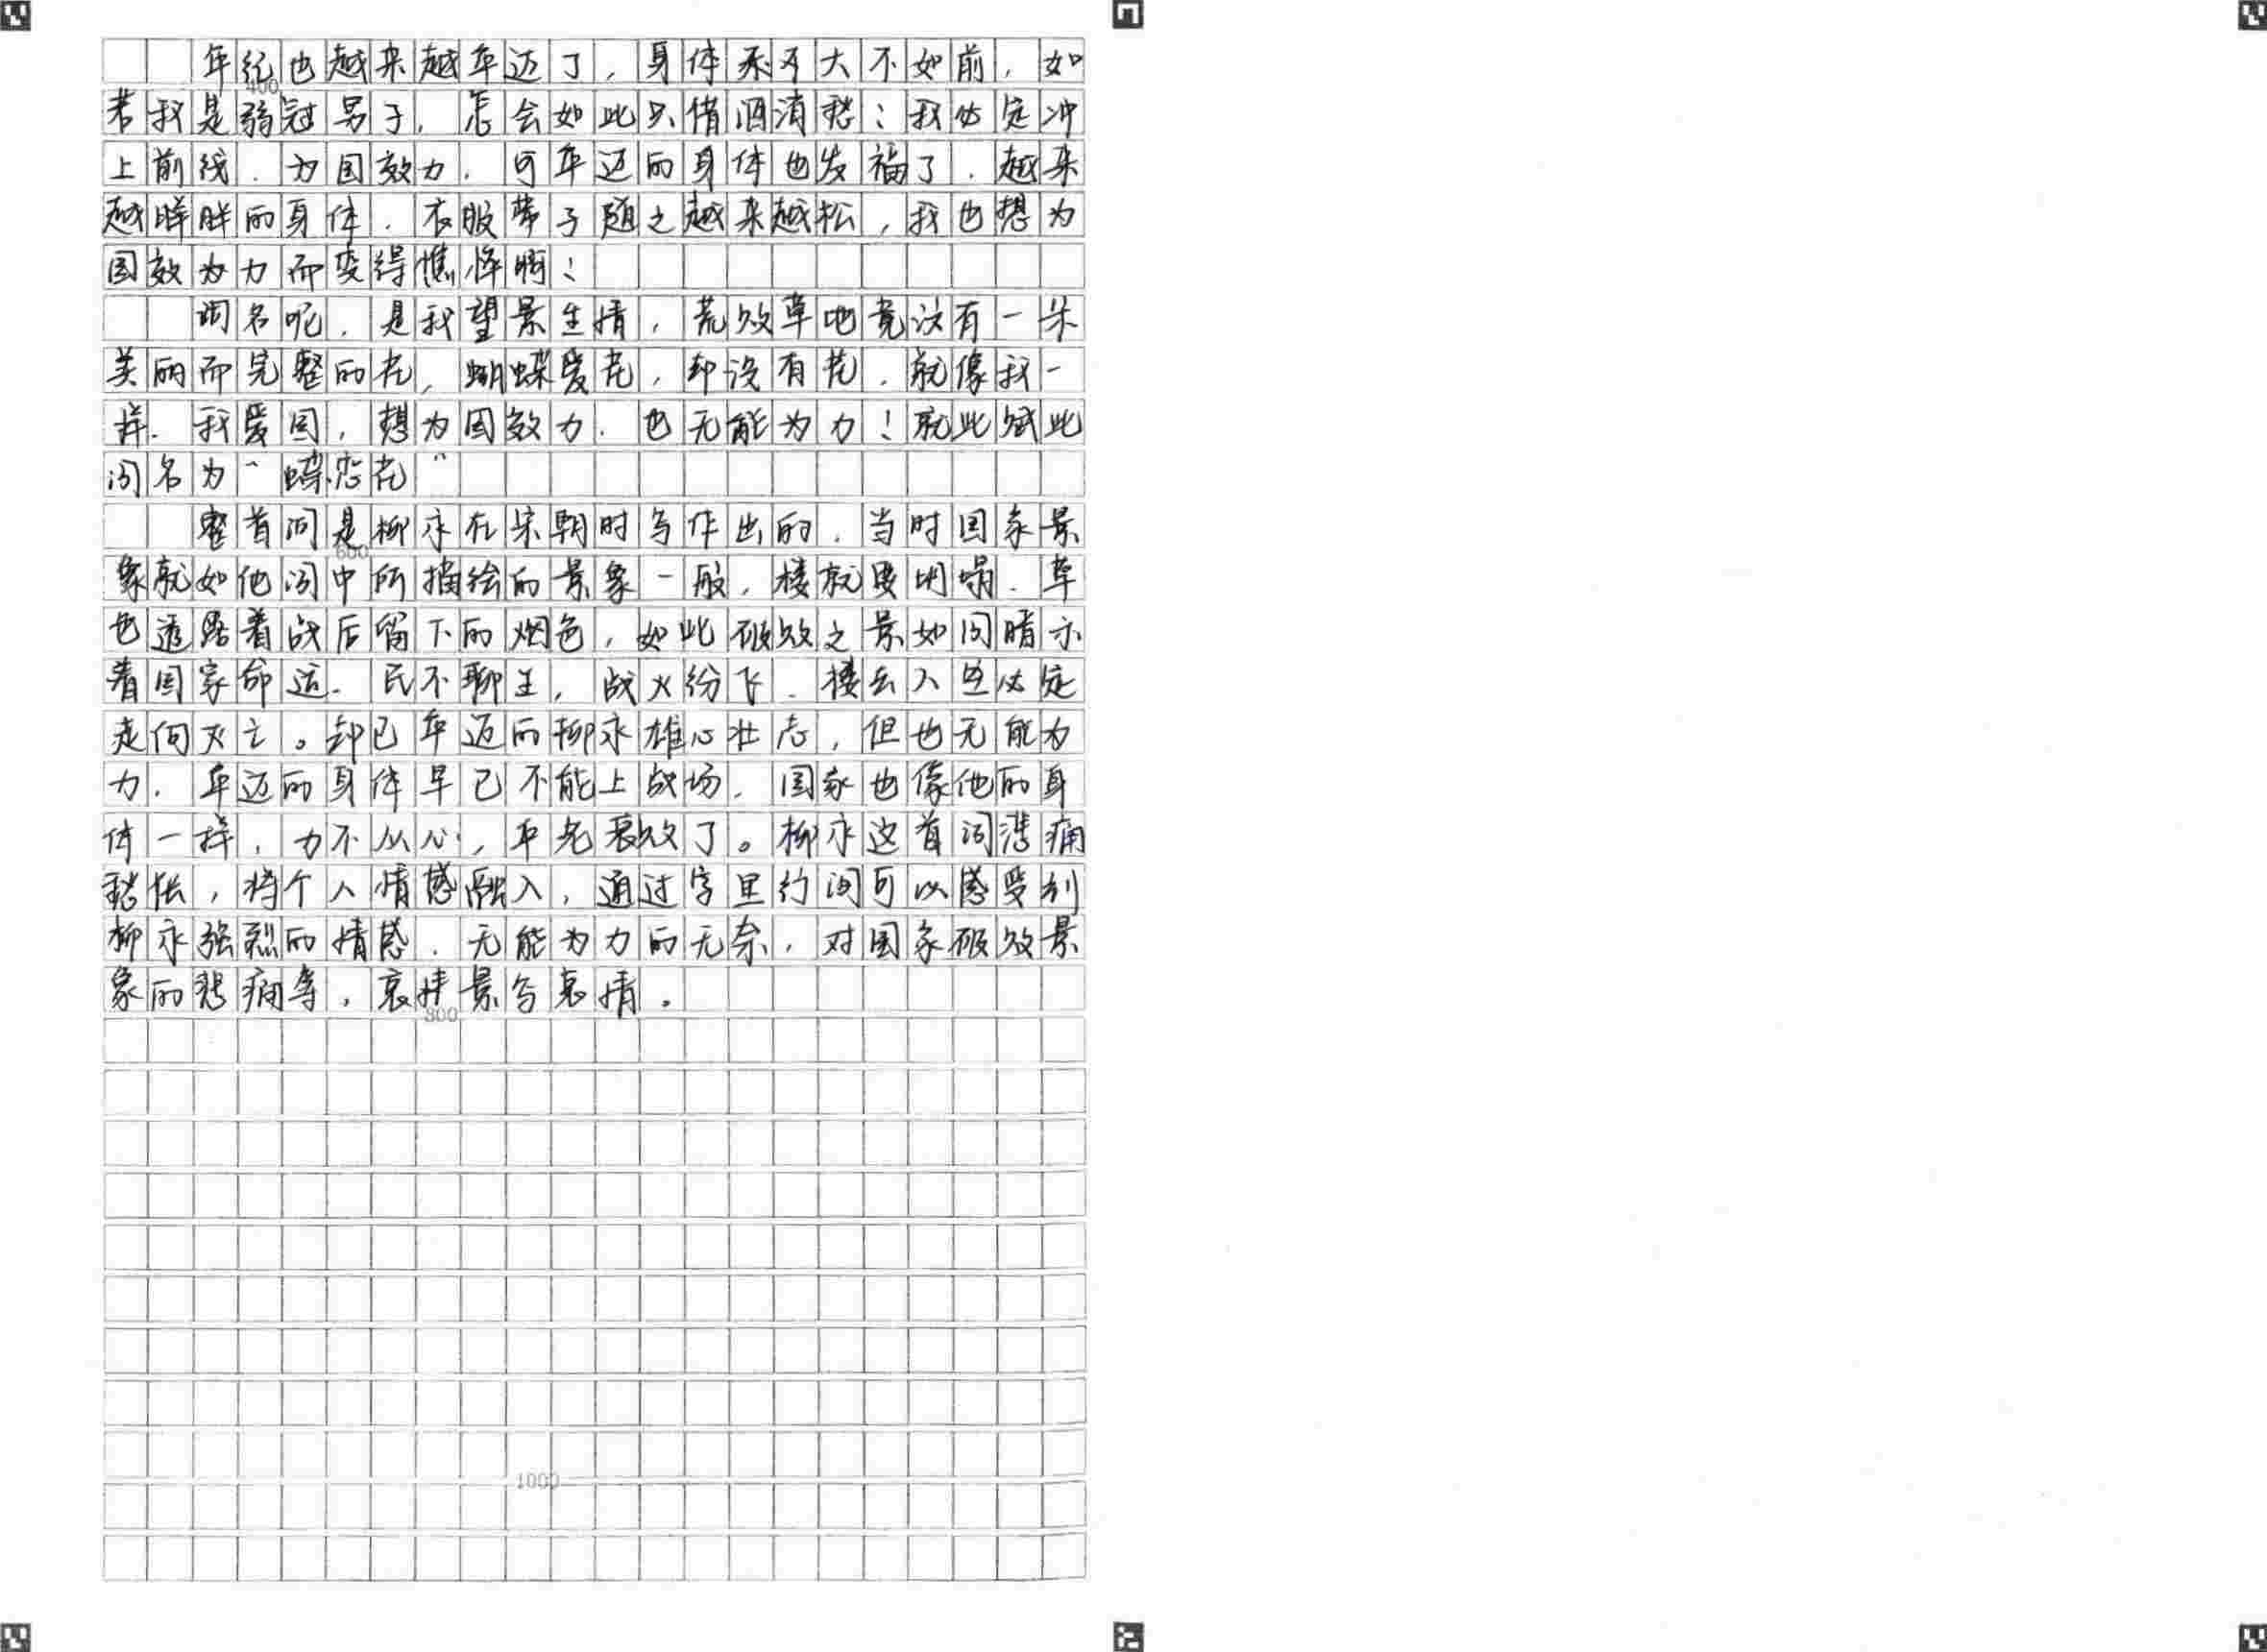 年纪也越来越年迈了，身体承不大不如前，如
400
若我是弱冠男子，怎会如此只借酒消愁！我必定冲
上前线，为国效力，可年迈的身体也发福了，越来
越胖胖的身体，衣服带子随之越来越松，我也想为
国效为力而变得憔悴啊！
词名呢，是我望景生情，荒败草地竟没有一朵
美丽而完整的花，蝴蝶爱花，却没有花，就像我一
样．我爱国，想为国效力．也无能为力！就此赋此
词名为“蝶恋花”
整首词是柳永在宋朝时写作出的，当时国家景
600
象就如他词中所描绘的景象一般，楼就要坍塌．草
也透露着战后留下的烟色，如此破败之景如同暗示
着国家命运．民不聊生，战火纷飞．楼去人空必定
走向灭亡。却已年迈的柳永雄心壮志，但也无能为
力．年迈的身体早已不能上战场．国家也像他的身
体一样，力不从心，年老衰败了。柳永这首词悲痛
愁怅，将个人情感融入，通过字里行间可以感受到
柳永强烈的情感．无能为力的无奈，对国家破败景
象的悲痛等，哀情景写哀情。
800
1000